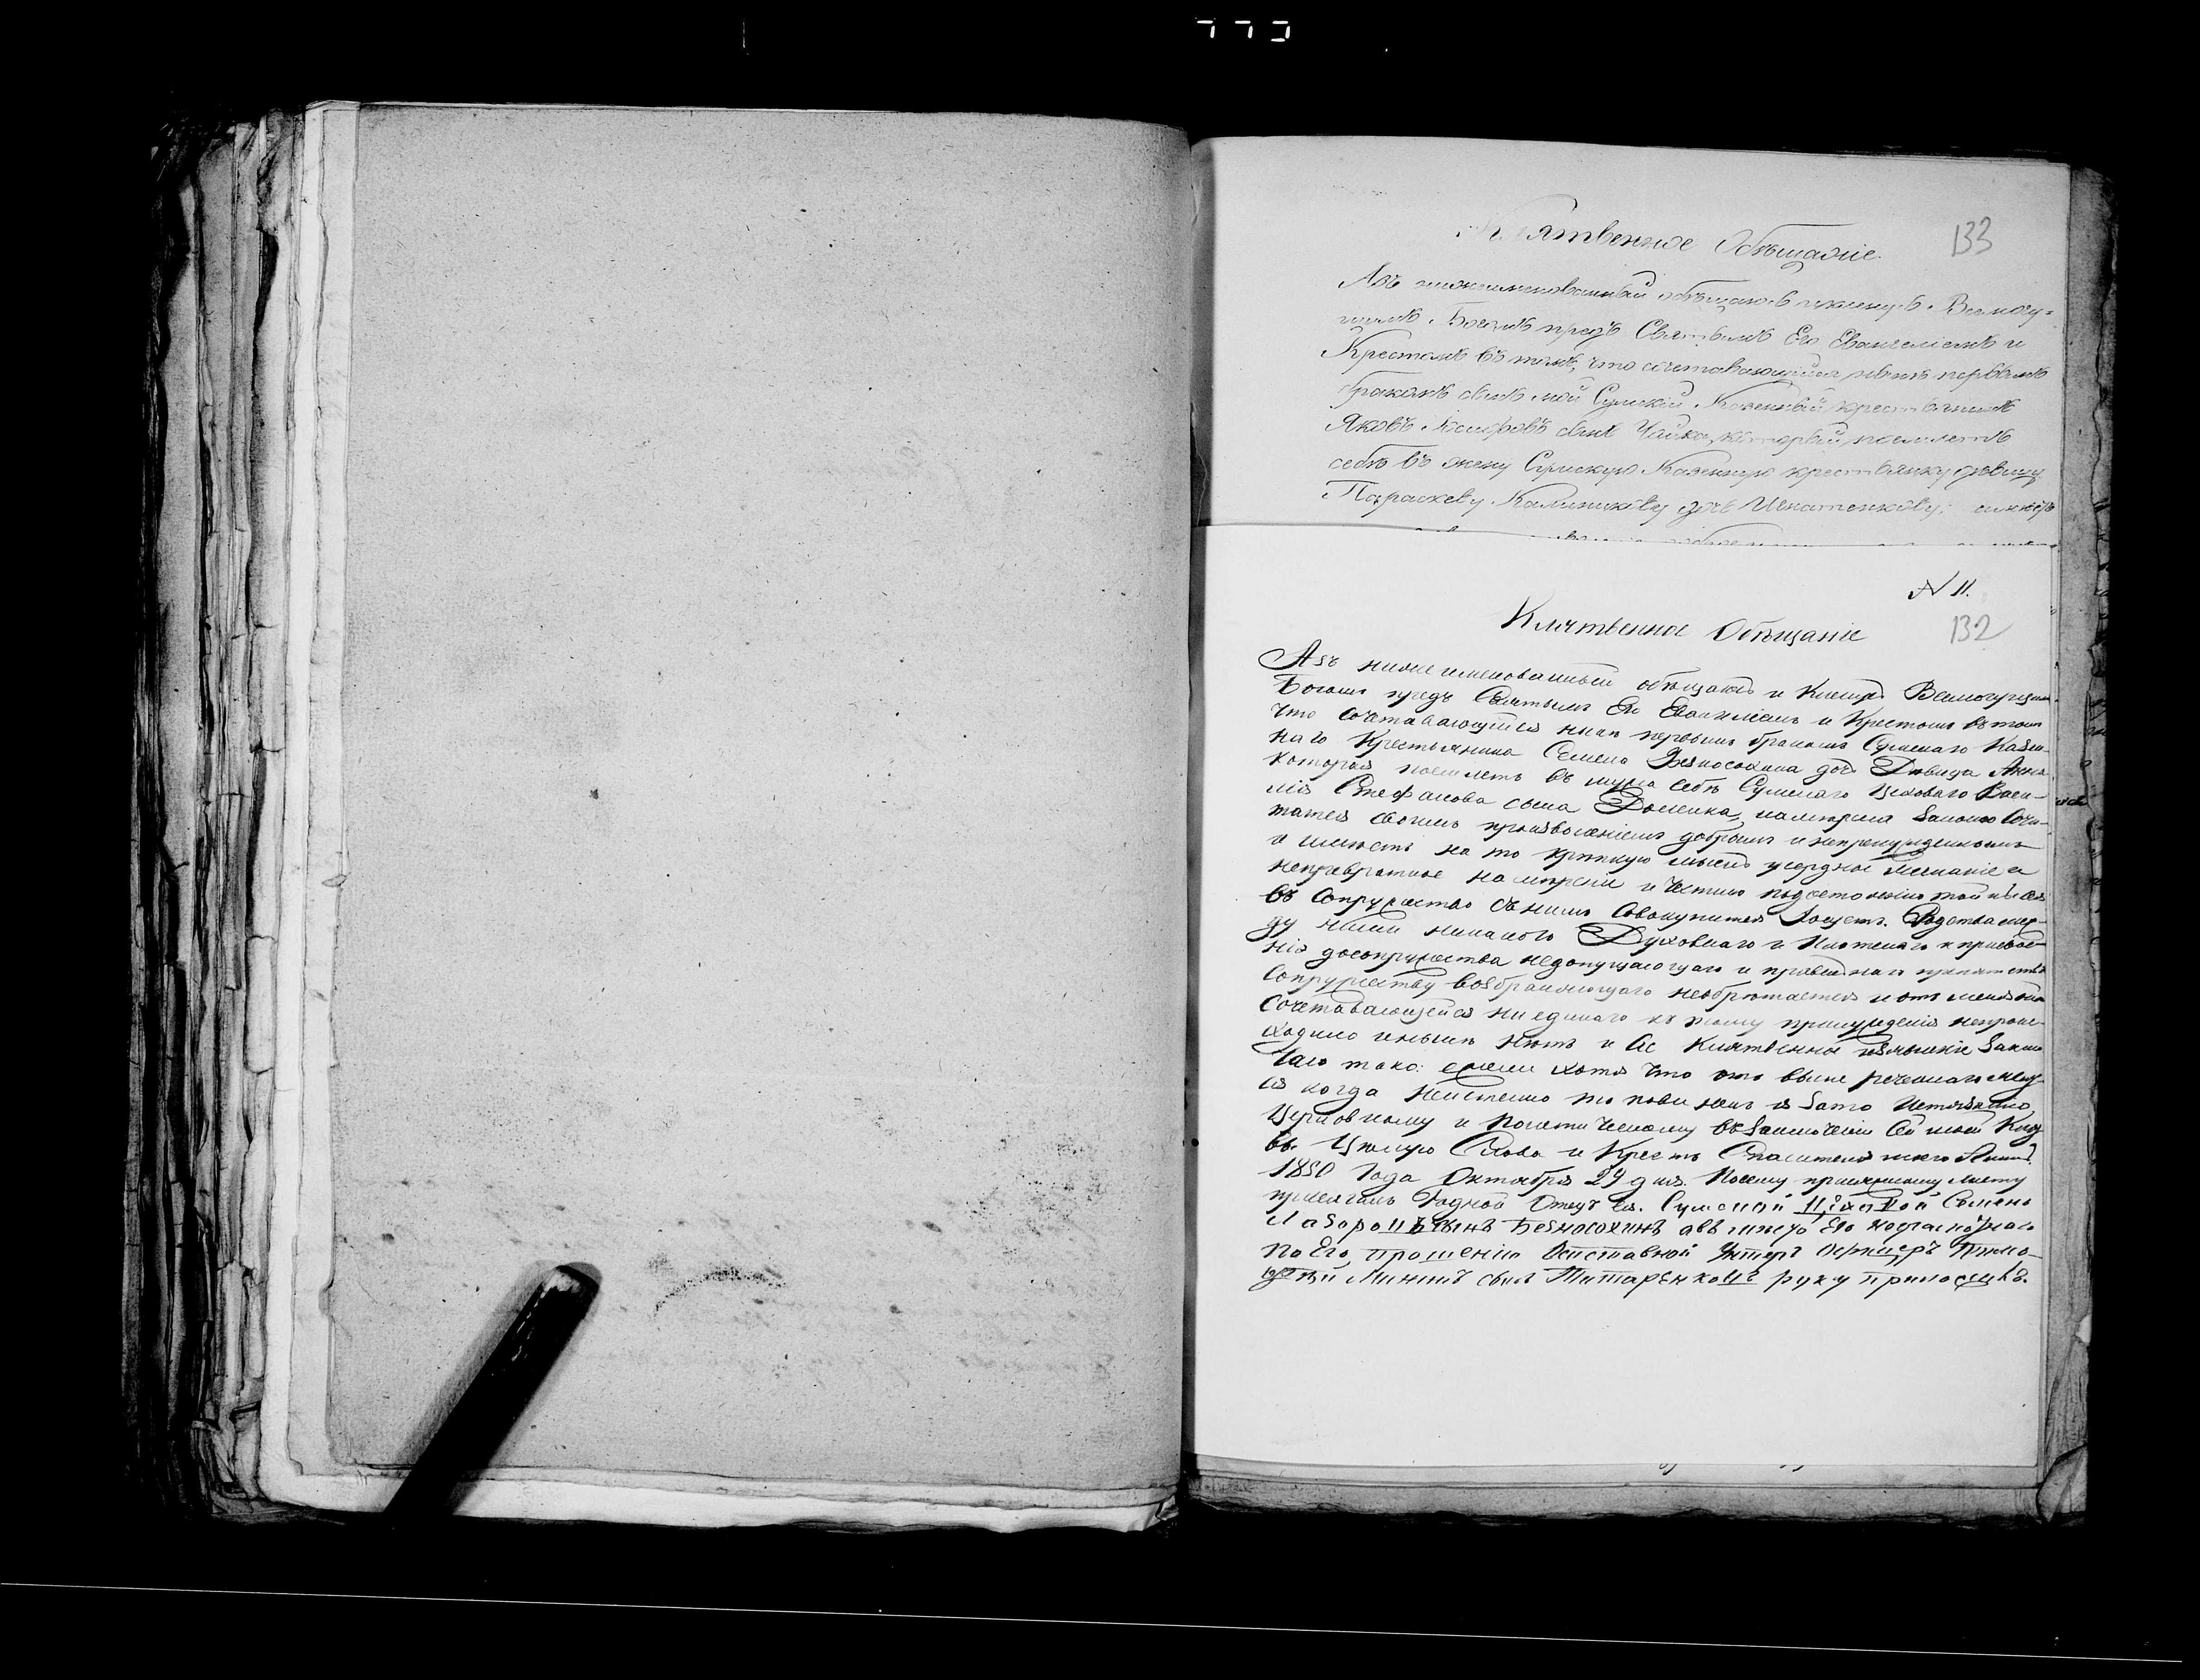 133
Клятвенное Обѣщаніе.
Азъ нижеименованный обѣщаюсь и кленусь Всемогу-
щимъ Богомъ предъ Святымъ Его Евангеліемъ и
Крестомъ въ томъ, что сочетавающийся нынѣ первымъ
бракомъ сынъ мой Сумскій Казенный крестьянинъ
Яковъ Іосифовъ сынъ Чайка, который поемлетъ
себѣ въ жену Сумскую Казенную крестьянку дѣвицу
Параскеву Калиникову дочь Игнатенкову;
N 11.
Клятвенное Обѣщаніе
132
Азъ нижеименованный обѣщаюсь и кленусь Всемогущимъ
Богомъ предъ Святымъ Его Евангеліемъ и Крестомъ въ томъ
что сочетавающуйся нынѣ первымъ бракомъ Сумскаго Казен-
наго Крестьянина Семена Безносохина дочь Дѣвица Анна
которая поемлетъ въ мужа себѣ Сумскаго Цеховаго Васи-
лія Стефанова сына Доленка, намѣрена Закономъ Соче-
татся своимъ произволеніемъ добрымъ и непренужденнымъ
и имѣетъ на то крѣпкую мысль усердное желаніе и
непревратное намѣреніе и честно подостоянію той
въ Сопружество съ нимъ Совокупится Хощетъ. Родства меж-
ду ними никакого Духовнаго и Плотскаго к присвое-
нія досопружества недопущающаго и правильнаго препятствія
Сопружеству возбраняющаго необрѣтается и отъ меня
Сочетавающейся ни единаго къ тому принужденія непроис-
ходило и нынѣ нѣтъ и Се Клятвенное Заклю-
чаю тако: ежели хотя что отъ выше реченнаго
когда неистенно то повиненъ я Зато Истязанію
Церковному и политическому въ Заключеніи Сей моей
Цѣлую Слова и Крестъ Спасителя моего Аминь.
1850 Года Октября 29 дня. Посему присяжному листу
присягалъ Родной Отецъ Ея. Сумской Семенъ
Лазаровъ сынъ Безносохинъ авъ мѣсто Его
По Его прошенію Отставной Унтеръ Офицеръ Тимо-
фѣй Мининъ сынъ Титаренковъ руку приложилъ.